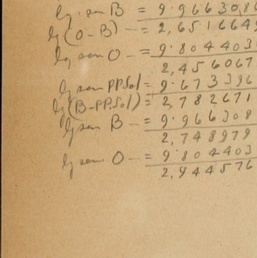 lg sen B = 9.966308
lg (O-B) -= 2,651664
lg sen O -= 9.804403
2,456067
lg sen PPSol = 9.673396
lg (B-PPSol) = 2,782671
lg sen B -= 9.966308
2,748979
lg sen O -= 9.804403
2.944576